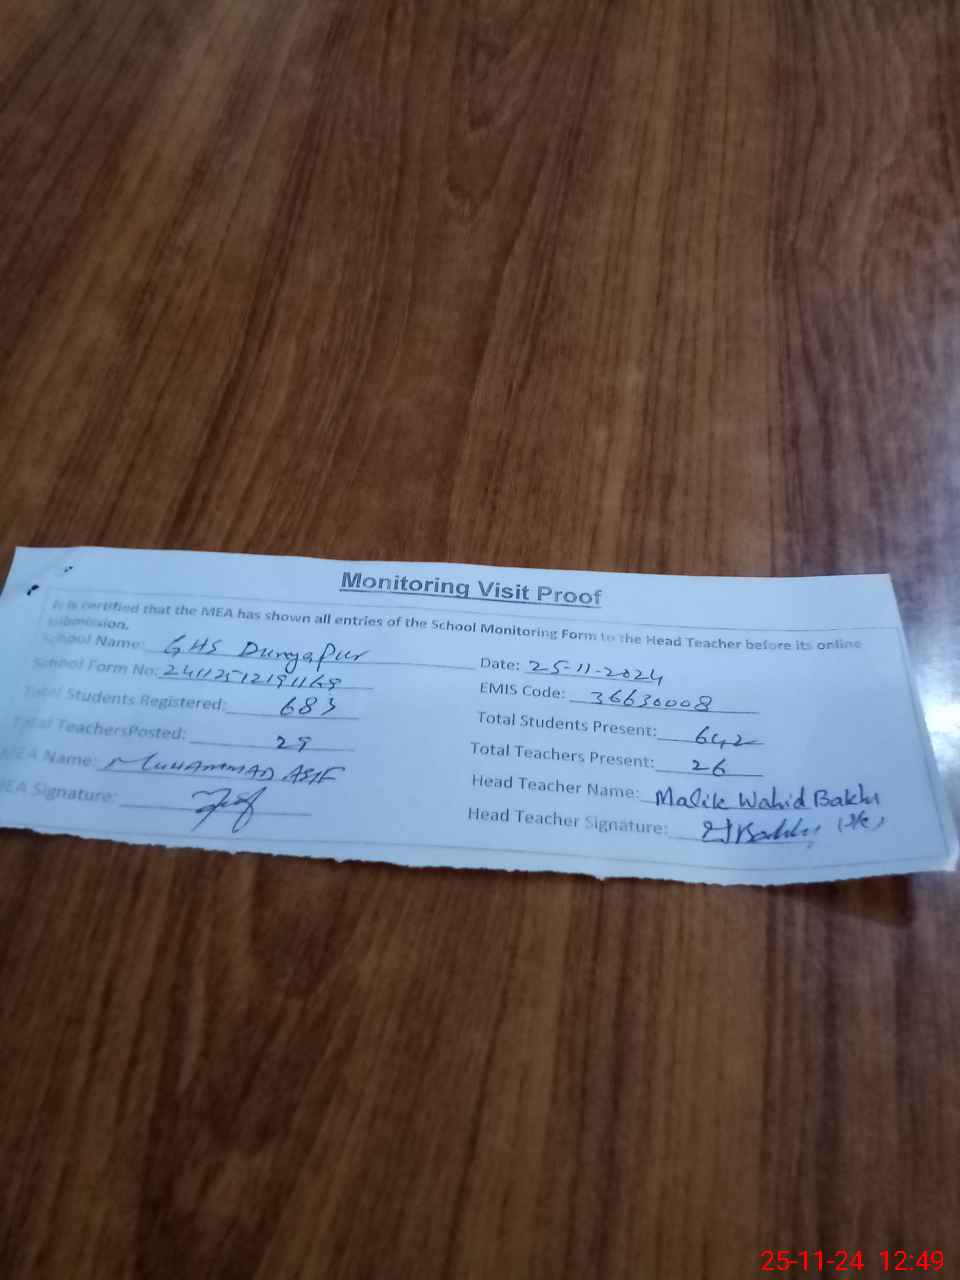 Monitoring Visit Proof
It is certified that the MEA has shown all entries of the School Monitoring Form to the Head Teacher before its online
submission.
School Name: GHS Dunyapur Date: 25-11-2024
School Form No: EMIS Code: 36630008
Total Students Registered: 683 Total Students Present: 642
Total TeachersPosted: 29 Total Teachers Present: 26
MEA Name: MUHAMMAD ASIF Head Teacher Name: Malik Wahid Bakhsh
MEA Signature: Head Teacher Signature:
25-11-24 12:49